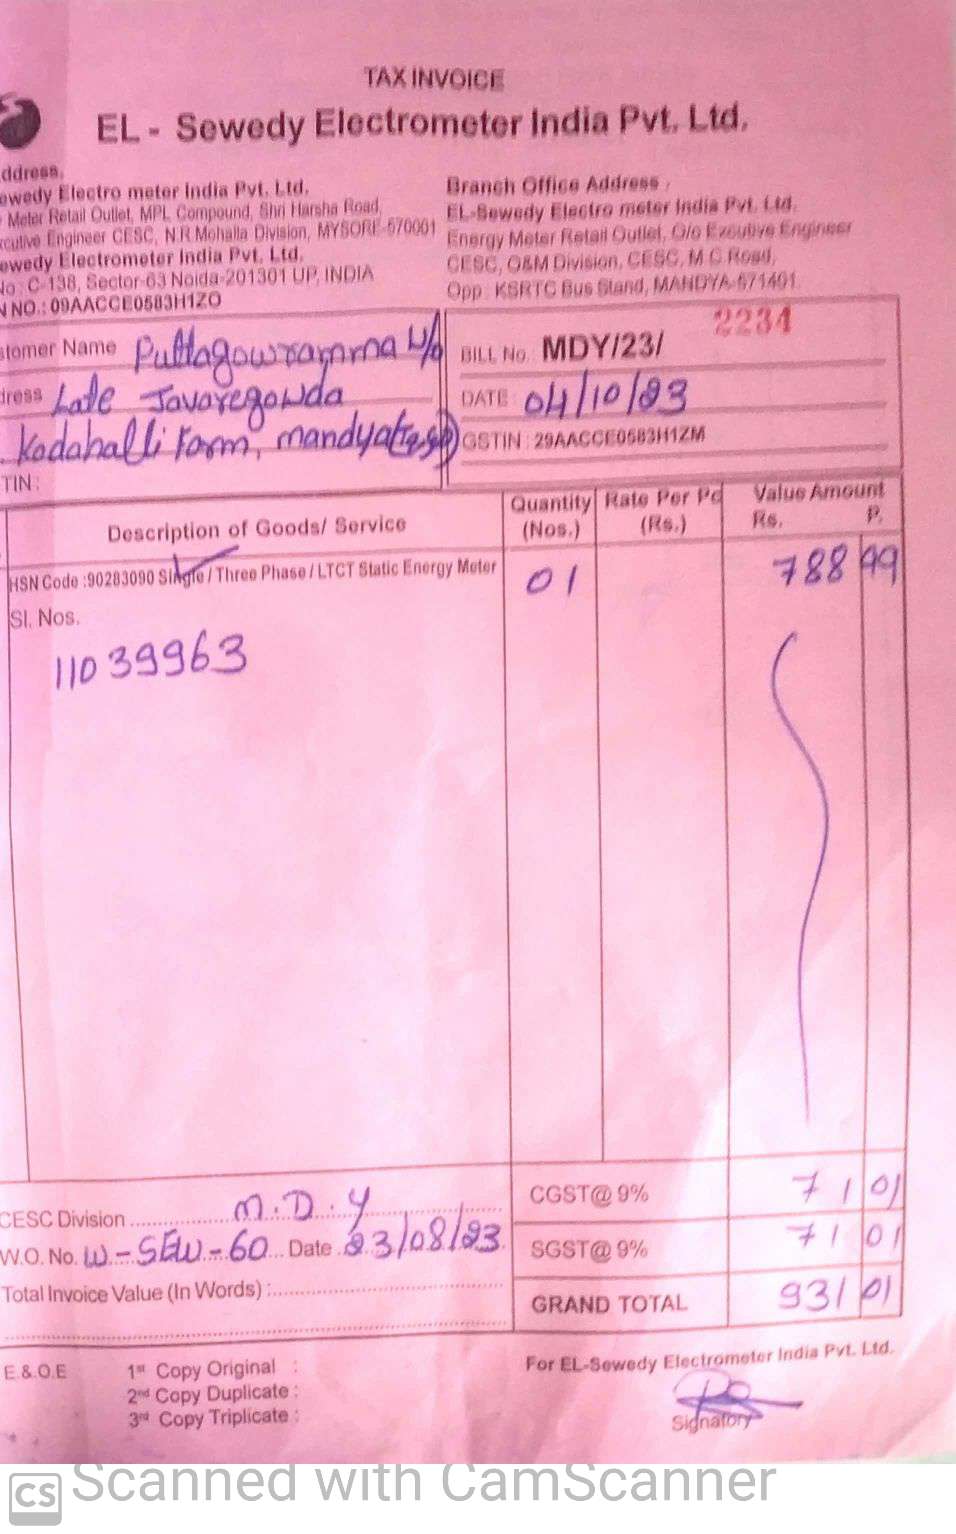 TAX INVOICE
EL - Sewedy Electrometer India Pvt. Ltd.
ddress.
ewedy Electro meter India Pvt. Ltd.
Meter Retail Outlet, MPL Compound, Shri Harsha Road,
xcutive Engineer CESC, N.R.Mohalla Division, MYSORE-570001
ewedy Electrometer India Pvt. Ltd.
No : C-138, Sector-63 Noida-201301 UP, INDIA
N NO.: 09AACCE0583H1ZO
Branch Office Address :
EL-Sewedy Electro meter India Pvt. Ltd.
Energy Meter Retail Outlet, O/o Excutive Engineer
CESC, O&M Division, CESC, M.C.Road,
Opp : KSRTC Bus Stand, MANDYA-571401.
stomer Name Puttagowramma W/o
dress Late Javaregowda
Kodahalli Farm, mandya
TIN :
2234
BILL No. MDY/23/
DATE : 04/10/23
GSTIN : 29AACCE0583H1ZM
Description of Goods/ Service Quantity (Nos.) Rate Per Pc (Rs.) Value Amount Rs. P.
HSN Code :90283090 Single / Three Phase / LTCT Static Energy Meter 01 788 99
Sl. Nos.
11039963
CGST@ 9% 71 01
SGST@ 9% 71 01
GRAND TOTAL 931 01
CESC Division M.D.Y
W.O. No. W-SEW-60 Date 23/08/23
Total Invoice Value (In Words) :
E.&.O.E 1st Copy Original :
2nd Copy Duplicate :
3rd Copy Triplicate :
For EL-Sewedy Electrometer India Pvt. Ltd.
Signatory
CS Scanned with CamScanner